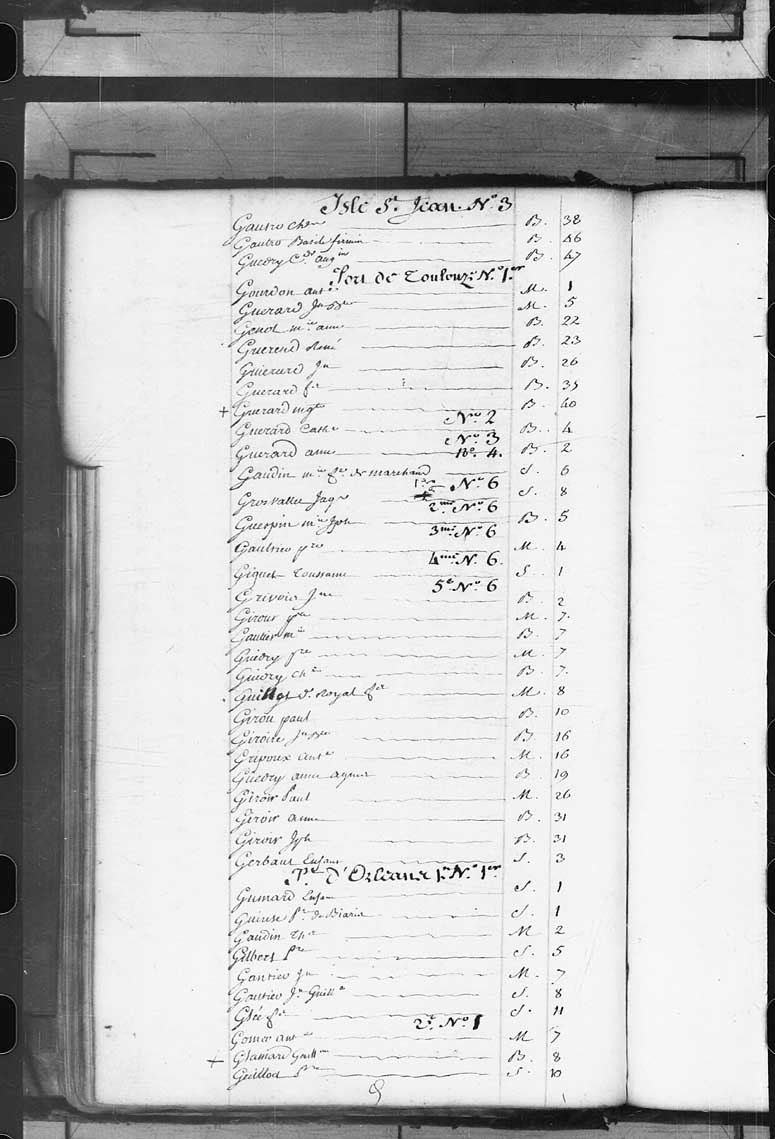 Isle St. Jean N.o 3
Gautro Chle B. 38
Gautro Basile firmin B. 46
Guedry B. 47
Port de Toulouze N.o 1.er
Gourdon ant.e M. 1
Guerard Jn Bte M. 5
Genot m.ie anne B. 22
Guerend René B. 23
Guerard Jn B. 26
Guerard B. 35
+ Guerard mgt B. 40
N.o 2
Guerard Cathe B. 4
N.o 3
Guerard anne B. 2
No. 4.
Gaudin de marchand S. 6
1.er N.o 6
Grosvallet Jaqe S. 8
2.me N.o 6
Guespin m.ie Jph B. 5
3.me N.o 6
Gautrier pre M. 4
4.me N. 6
Giquel Toussaine S. 1
5.e N.o 6
Grivois Jne B. 2
Giroir pre M. 7.
Gautier m.ie B. 7
Guedry pre M. 7
Guedry Ch.e B. 7.
Guillot d. Royal M. 8
Girou paul B. 10
Giroire Jn Bte B. 16
Gripoux ant.e M. 16
Guedry anne agnes B. 19
Giroir Paul M. 26
Giroir anne B. 31
Giroir Jph B. 31
Gerbaut Enfant S. 3
P.te d'Orleans 1.r N.o 1.er
Gumard S. 1
P.re de Biaria S. 1
Gaudin Th.e M 2
Gilbert P.re S. 5
Gautier Jn M. 7
Gautier J.n Guill.e S. 8
Glée S. 11
2.e N.o 1
Gomer ant M 7
+ Glamard Guill.me B. 8
Guillot P.re S. 10